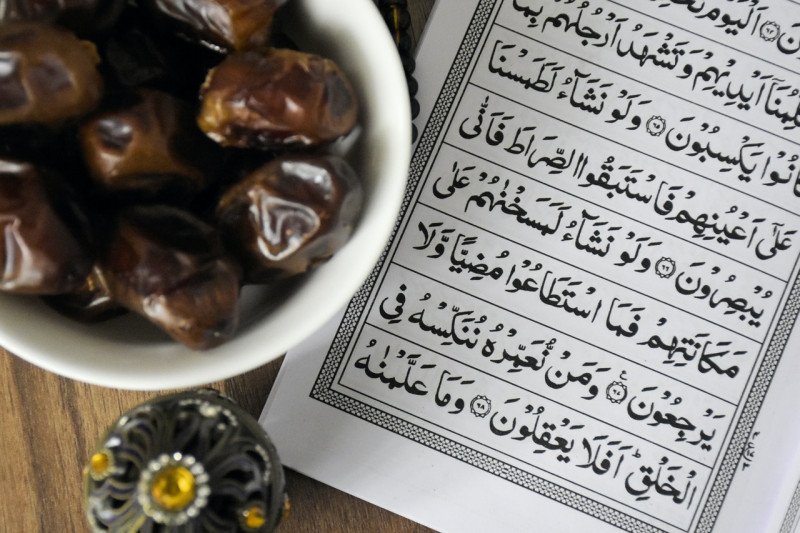 اَلْيَوْمَ
اَيْدِيْهِمْ وَتَشْهَدُ اَرْجُلُهُمْ بِمَا
كَانُوْا يَكْسِبُوْنَ ﴿٦٥﴾ وَلَوْ نَشَآءُ لَطَمَسْنَا
عَلٰۤى اَعْيُنِهِمْ فَاسْتَبَقُوا الصِّرَاطَ فَاَنّٰى
يُبْصِرُوْنَ ﴿٦٦﴾ وَلَوْ نَشَآءُ لَمَسَخْنٰهُمْ عَلٰى
مَكَانَتِهِمْ فَمَا اسْتَطَاعُوْا مُضِيًّا وَّلَا
يَرْجِعُوْنَ ﴿٦٧﴾ وَمَنْ نُّعَمِّرْهُ نُنَكِّسْهُ فِى
الْخَلْقِ ؕ اَفَلَا يَعْقِلُوْنَ ﴿٦٨﴾ وَمَا عَلَّمْنٰهُ